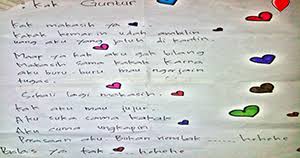 Kak Guntur
Kak makasih ya
Kakak kemarin udah ambilin
uang aku yang jatuh di kantin.
Maaf ya kak aku gak bilang
Makasih sama kakak karna
aku buru-buru mau ngerjain
tugas.
Sekali lagi makasih.
kak aku mau jujur.
Aku suka sama kakak
Aku cuma ungkapin
Perasaan aku. Bukan nembak ..... hehehe
Balas ya kak ..... hehehe